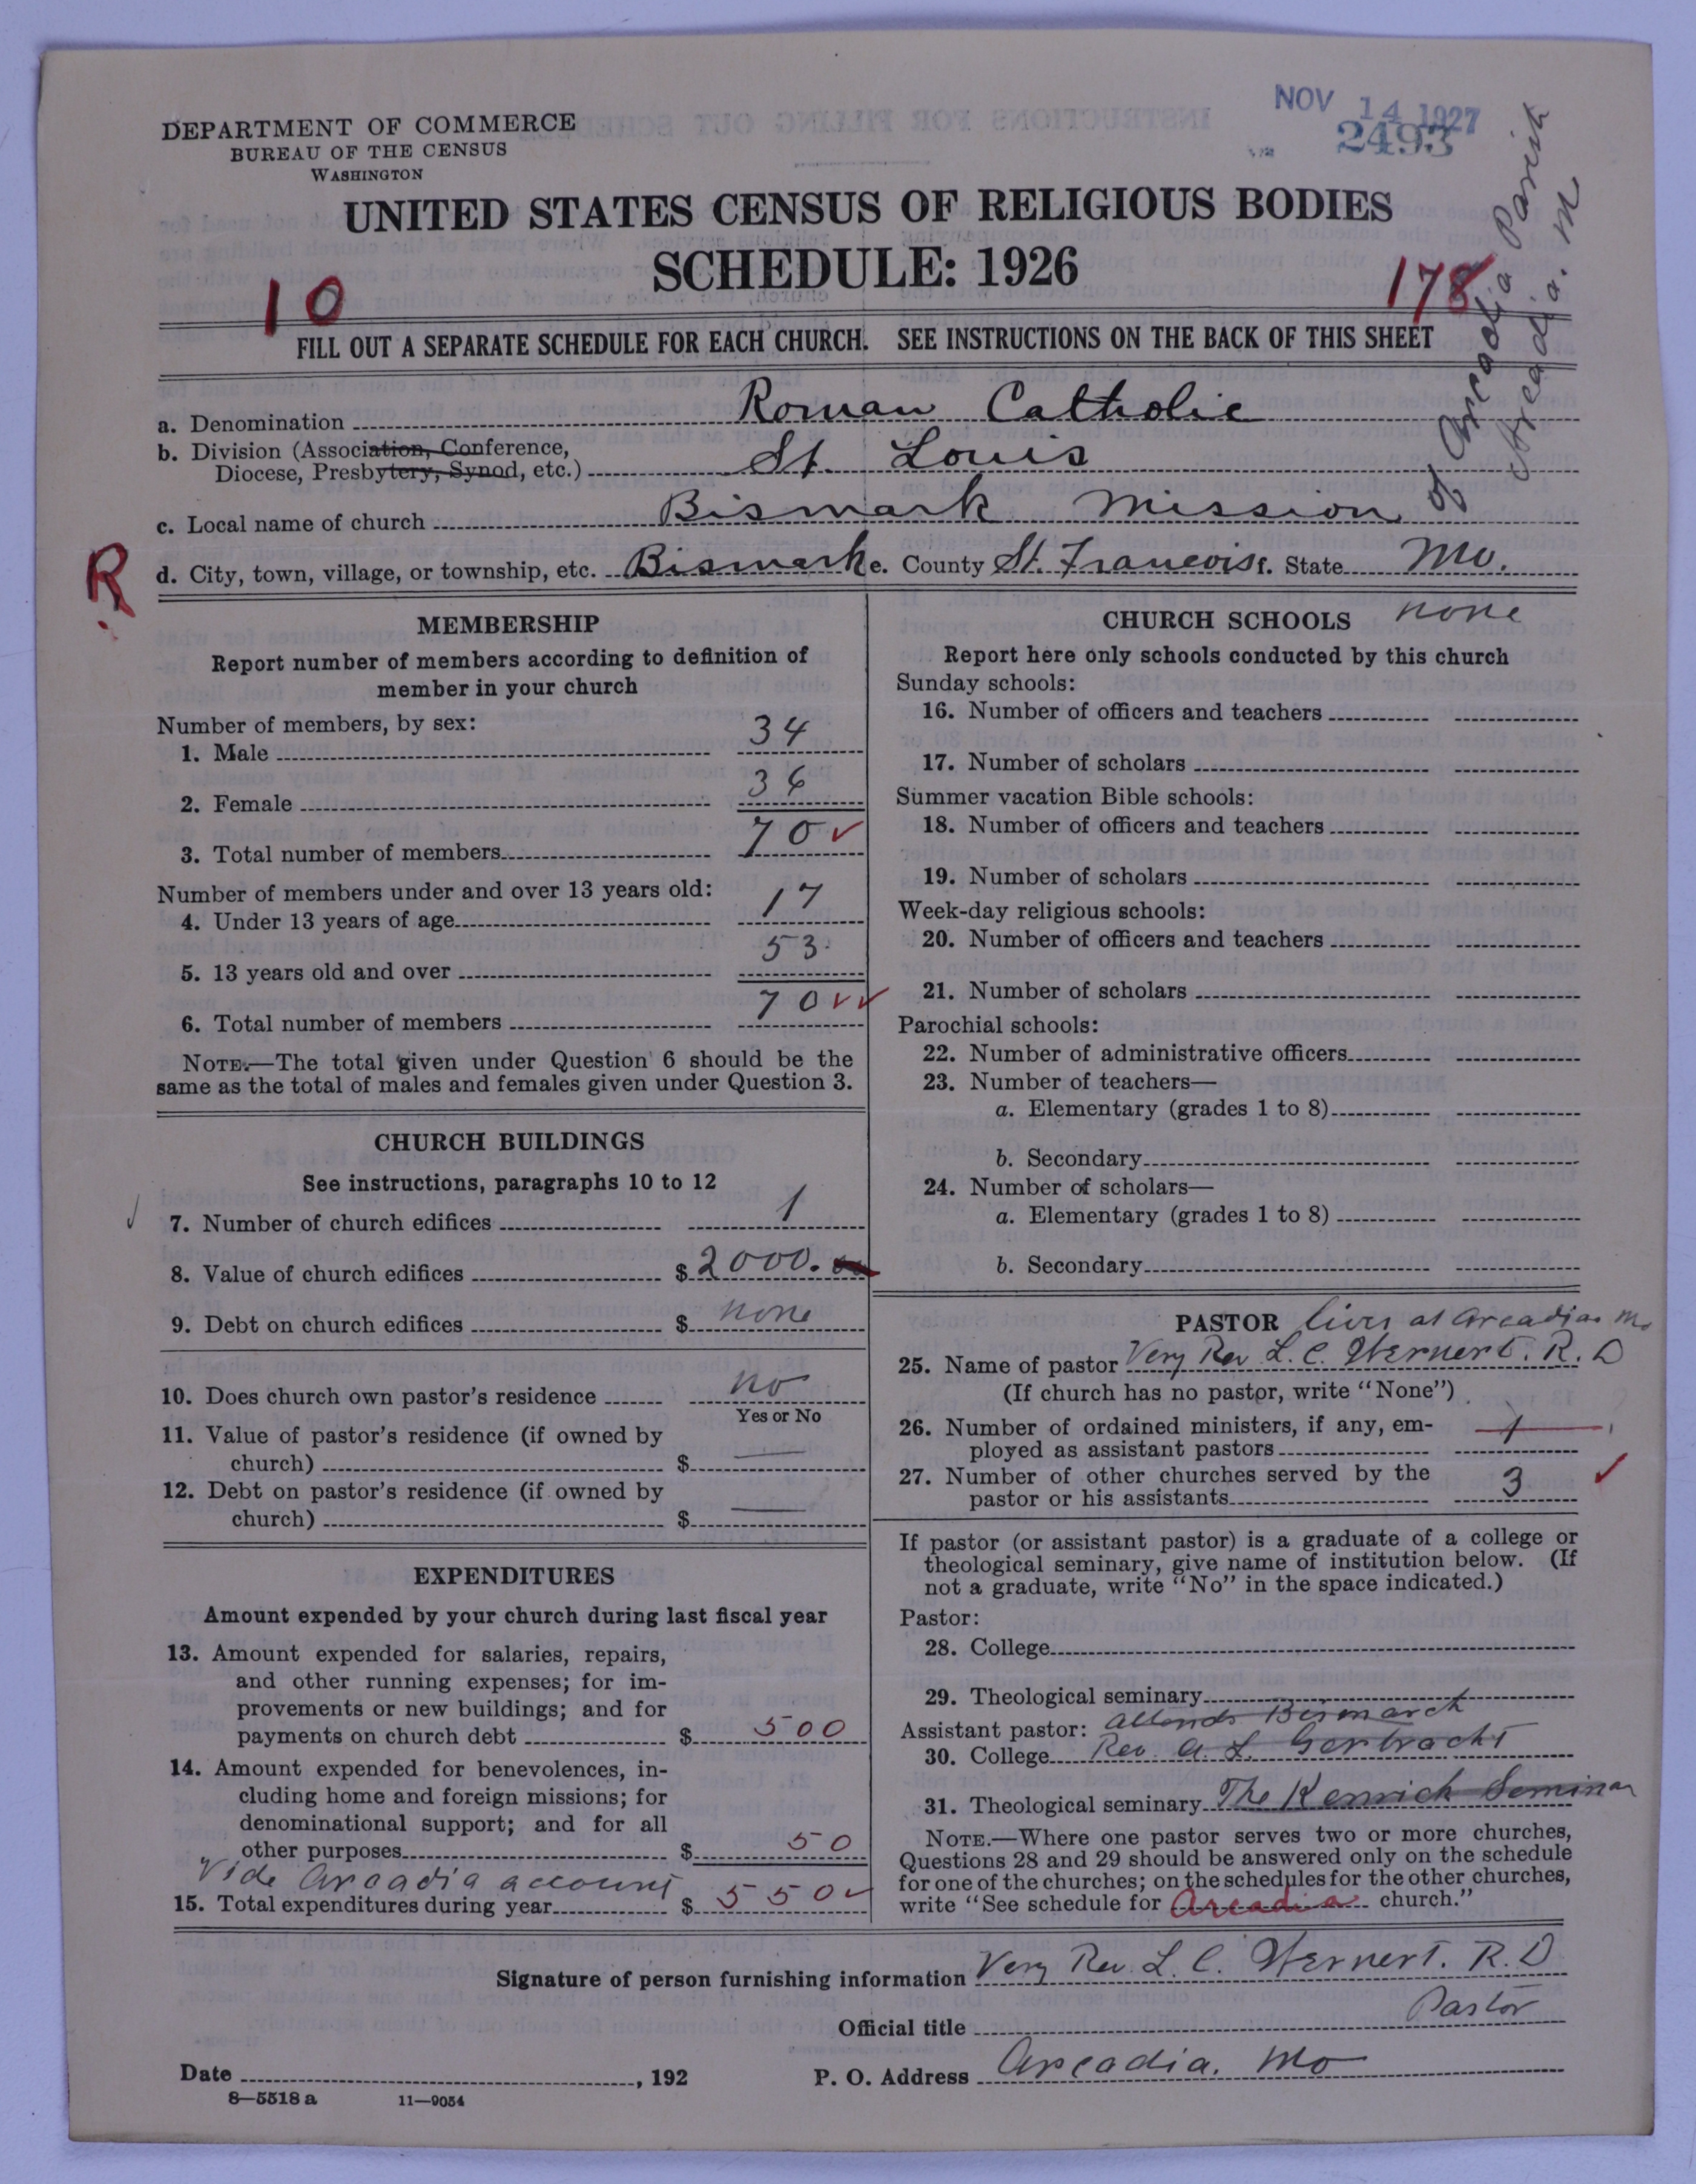 NOV 14 1927
2493
DEPARTMENT OF COMMERCE
BUREAU OF THE CENSUS
WASHINGTON
UNITED STATES CENSUS OF RELIGIOUS BODIES
SCHEDULE: 1926
10
178
FILL OUT A SEPARATE SCHEDULE FOR EACH CHURCH. SEE INSTRUCTIONS ON THE BACK OF THIS SHEET
a. Denomination Roman Catholic
b. Division (Association, Conference,
Diocese, Presbytery, Synod, etc.) St. Louis
c. Local name of church Bismark Mission of Arcadia Parish
Arcadia. M
R
d. City, town, village, or township, etc. Bismark e. County St. Francois f. State Mo.
MEMBERSHIP
Report number of members according to definition of
member in your church
Number of members, by sex:
1. Male 34
2. Female 36
3. Total number of members 70
Number of members under and over 13 years old:
4. Under 13 years of age 17
5. 13 years old and over 53
6. Total number of members 70
NOTE.—The total given under Question 6 should be the
same as the total of males and females given under Question 3.
CHURCH BUILDINGS
See instructions, paragraphs 10 to 12
7. Number of church edifices 1
8. Value of church edifices $ 2000.00
9. Debt on church edifices $ none
10. Does church own pastor's residence no
Yes or No
11. Value of pastor's residence (if owned by
church) $ —
12. Debt on pastor's residence (if owned by
church) $ —
EXPENDITURES
Amount expended by your church during last fiscal year
13. Amount expended for salaries, repairs,
and other running expenses; for im-
provements or new buildings; and for
payments on church debt $ 500
14. Amount expended for benevolences, in-
cluding home and foreign missions; for
denominational support; and for all
other purposes $ 50
Vide Arcadia account
15. Total expenditures during year $ 550
CHURCH SCHOOLS none
Report here only schools conducted by this church
Sunday schools:
16. Number of officers and teachers
17. Number of scholars
Summer vacation Bible schools:
18. Number of officers and teachers
19. Number of scholars
Week-day religious schools:
20. Number of officers and teachers
21. Number of scholars
Parochial schools:
22. Number of administrative officers
23. Number of teachers—
a. Elementary (grades 1 to 8)
b. Secondary
24. Number of scholars—
a. Elementary (grades 1 to 8)
b. Secondary
PASTOR lives at Arcadia Mo
25. Name of pastor Very Rev L. C. Wernert. R. D
(If church has no pastor, write "None")
26. Number of ordained ministers, if any, em-
ployed as assistant pastors 1
27. Number of other churches served by the
pastor or his assistants 3
If pastor (or assistant pastor) is a graduate of a college or
theological seminary, give name of institution below. (If
not a graduate, write "No" in the space indicated.)
Pastor:
28. College
29. Theological seminary
Assistant pastor: attends Bismarck
30. College Rev. A. L. Gerbracht
31. Theological seminary The Kenrick Seminar
NOTE.—Where one pastor serves two or more churches,
Questions 28 and 29 should be answered only on the schedule
for one of the churches; on the schedules for the other churches,
write "See schedule for Arcadia church."
Signature of person furnishing information Very Rev. L. C. Wernert. R. D
Official title Pastor
Date , 192
P. O. Address Arcadia. Mo
8—5518 a 11—9054